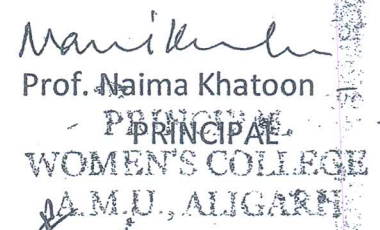 Prof. Naima Khatoon
PRINCIPAL
PRINCIPAL
WOMEN'S COLLEGE
A.M.U., ALIGARH